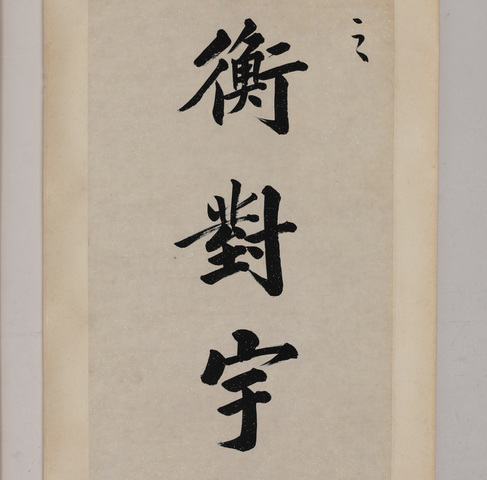 之
衡對宇